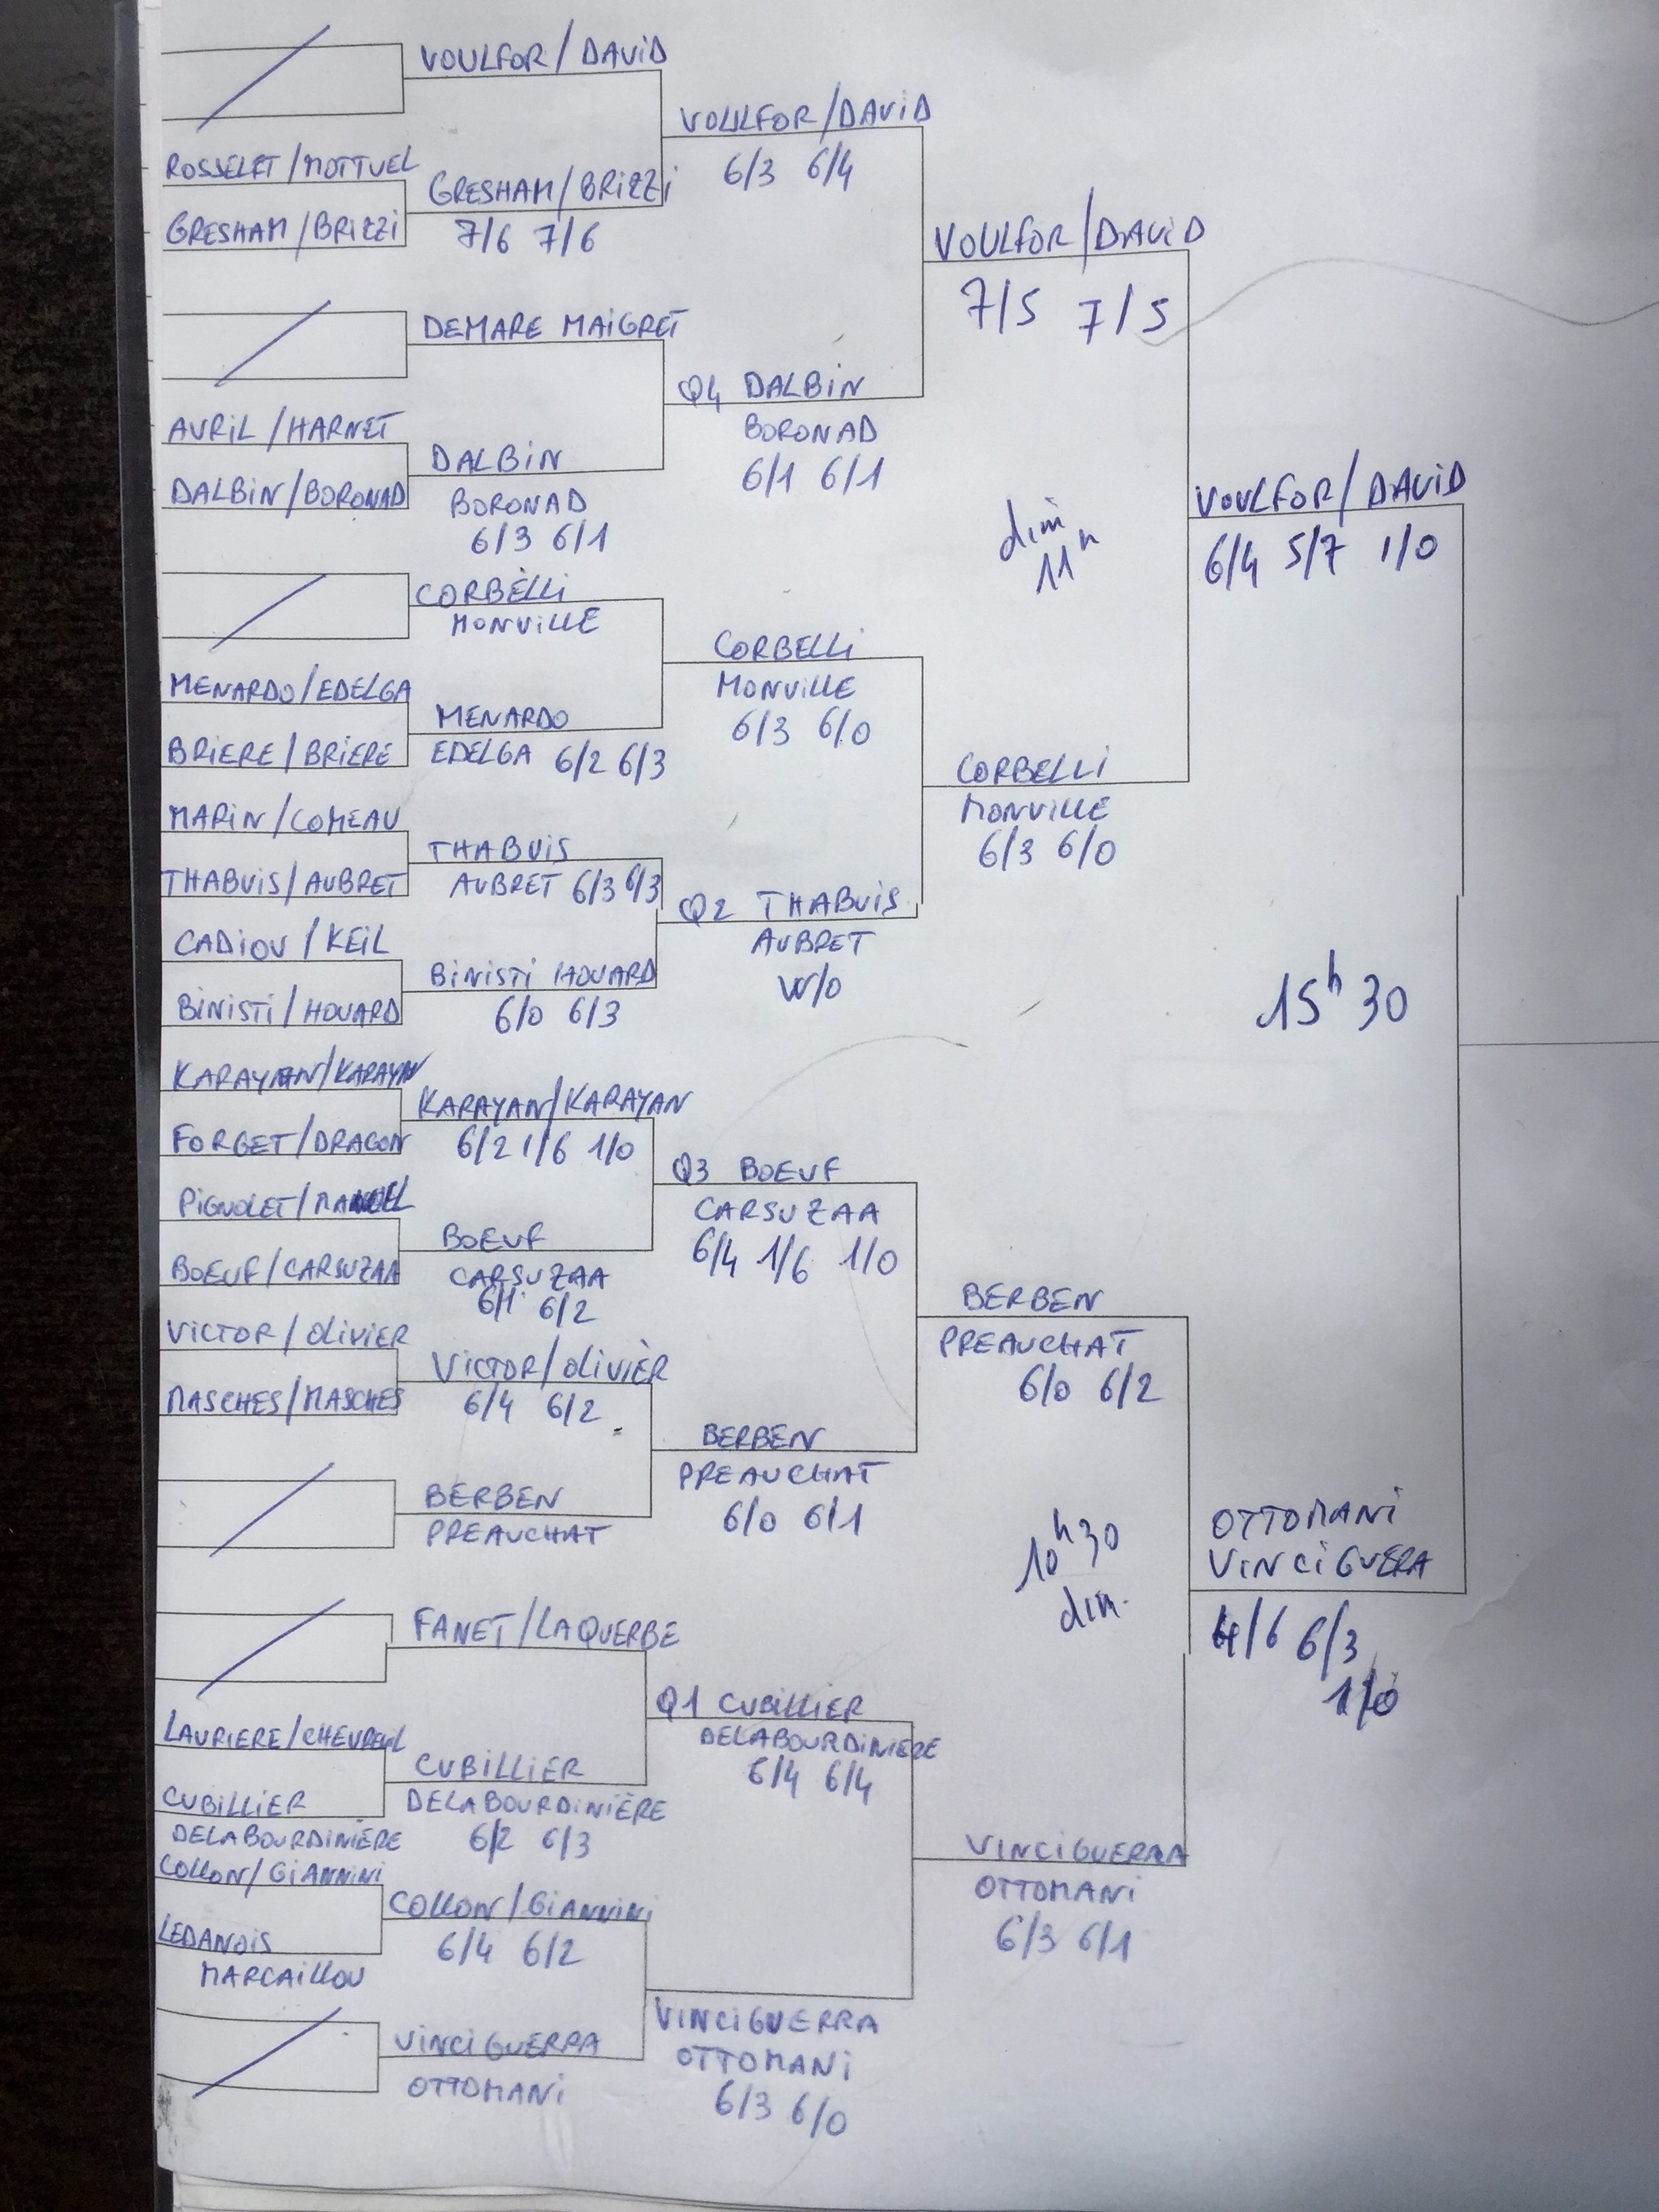 VOULFOR/DAVID
ROSSELET/MOTTUEL
GRESHAM/BRIZZI
GRESHAM/BRIZZI
7/6 7/6
VOULFOR/DAVID
6/3 6/4
DEMARE MAIGRET
AVRIL/HARNET
DALBIN/BORONAD
DALBIN
BORONAD
6/3 6/1
Q4 DALBIN
BORONAD
6/1 6/1
VOULFOR/DAVID
7/5 7/5
dim
11h
CORBELLI
MONVILLE
MENARDO/EDELGA
BRIERE/BRIERE
MENARDO
EDELGA 6/2 6/3
CORBELLI
MONVILLE
6/3 6/0
MARIN/COMEAU
THABUIS/AUBRET
THABUIS
AUBRET 6/3 6/3
CADIOU/KEIL
BINISTI/HOUARD
BINISTI HOUARD
6/0 6/3
Q2 THABUIS
AUBRET
W/O
CORBELLI
MONVILLE
6/3 6/0
VOULFOR/DAVID
6/4 5/7 1/0
15h30
KARAYAN/KARAYAN
FORGET/DRAGON
KARAYAN/KARAYAN
6/2 1/6 1/0
PIGNOLET/MANUEL
BOEUF/CARSUZAA
BOEUF
CARSUZAA
6/1 6/2
Q3 BOEUF
CARSUZAA
6/4 1/6 1/0
VICTOR/OLIVIER
MASCHES/MASCHES
VICTOR/OLIVIER
6/4 6/2
BERBEN
PREAUCHAT
BERBEN
PREAUCHAT
6/0 6/1
BERBEN
PREAUCHAT
6/0 6/2
10h30
dim.
FANET/LAQUERBE
LAURIERE/CHEVREUIL
CUBILLIER
DELABOURDINIÈRE
CUBILLIER
DELABOURDINIÈRE
6/2 6/3
Q1 CUBILLIER
DELABOURDINIERE
6/4 6/4
COLLON/GIANNINI
LEDANOIS
MARCAILLOU
COLLON/GIANNINI
6/4 6/2
VINCIGUERRA
OTTOMANI
VINCIGUERRA
OTTOMANI
6/3 6/0
VINCIGUERRA
OTTOMANI
6/3 6/1
OTTOMANI
VINCIGUERA
4/6 6/3
1/0